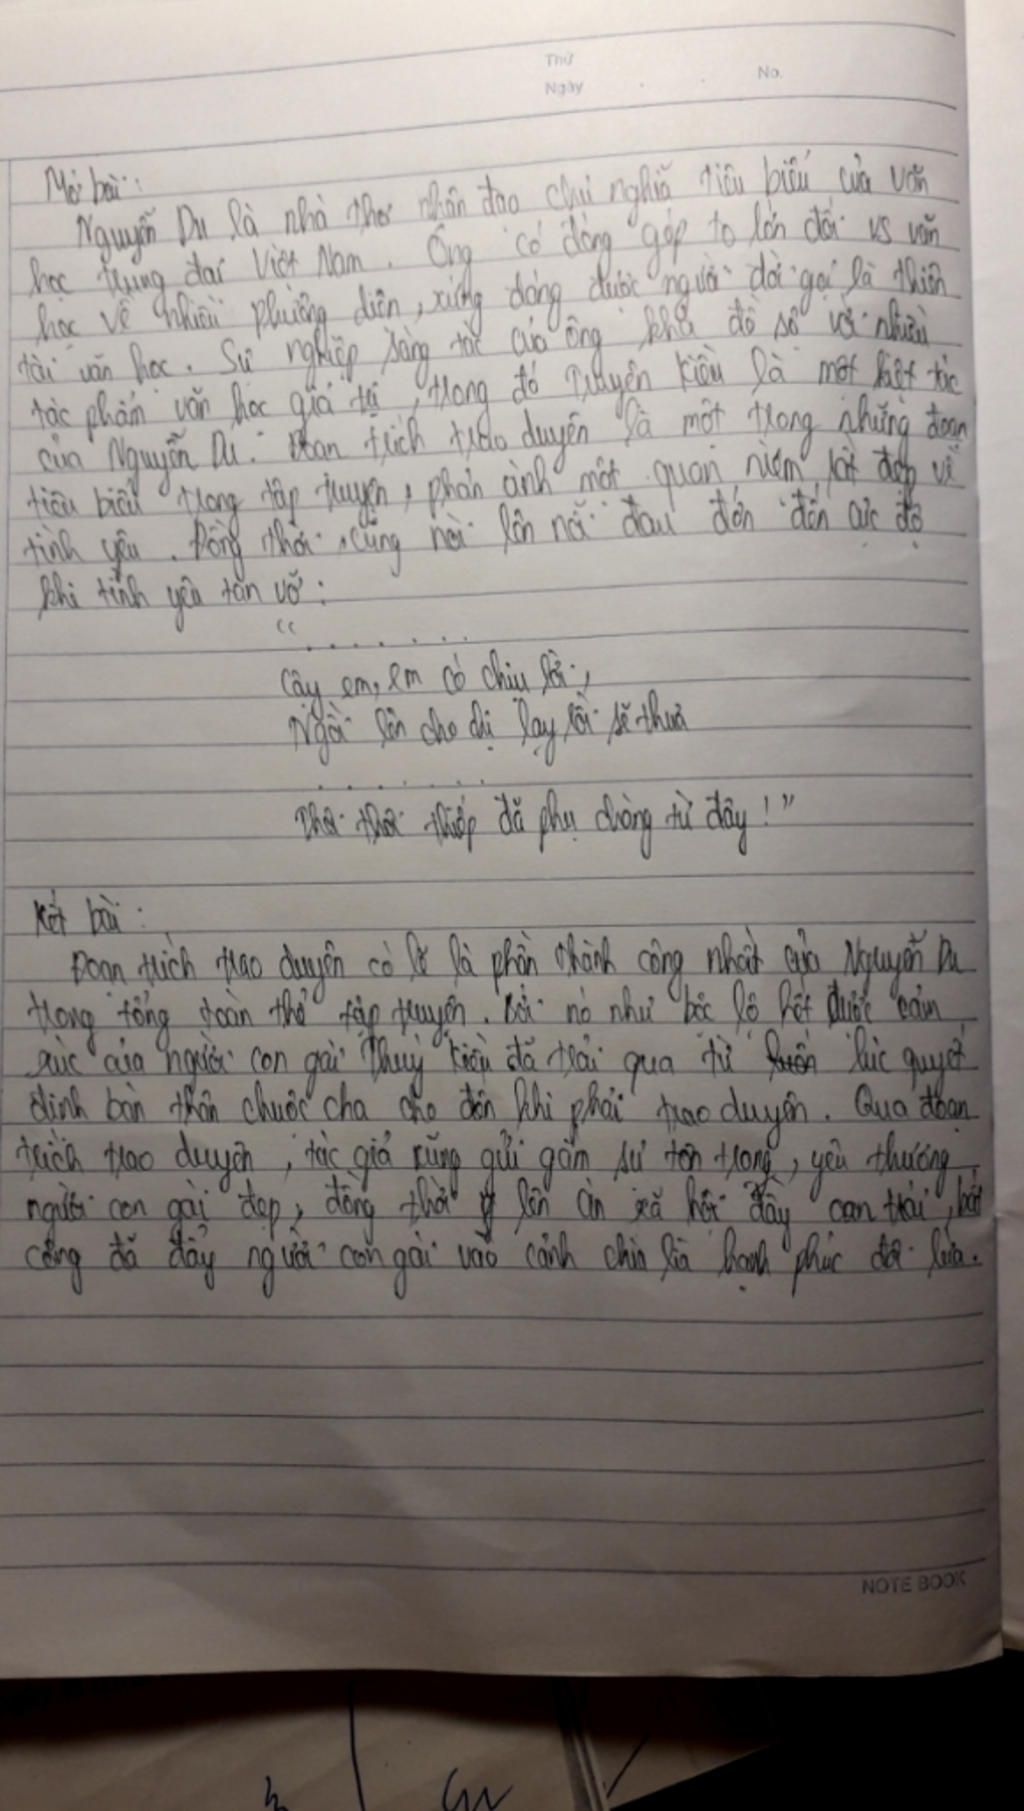 Thứ
Ngày
No.
Mở bài :
Nguyễn Du là nhà thơ nhân đạo chủ nghĩa tiêu biểu của văn
học trung đại Việt Nam. Ông có đóng góp to lớn đối vs văn
học về nhiều phương diện, xứng đáng được người đời gọi là thiên
tài văn học. Sự nghiệp sáng tác của ông khá đồ sộ với nhiều
tác phẩm văn học giá trị, trong đó Truyện Kiều là một kiệt tác
của Nguyễn Du. Đoạn trích trao duyên là một trong những đoạn
tiêu biểu trong tập truyện, phản ánh một quan niệm rất đẹp về
tình yêu. Đồng thời, cũng nói lên nỗi đau đớn đến cực độ
khi tình yêu tan vỡ :
“ . . . . . . .
Cậy em, em có chịu lời,
Ngồi lên cho chị lạy rồi sẽ thưa
. . . . . . .
Thôi thôi thiếp đã phụ chàng từ đây ! ”
Kết bài :
Đoạn trích trao duyên có lẽ là phần thành công nhất của Nguyễn Du
trong tổng toàn thể tập truyện. Bởi nó như bộc lộ hết được cảm
xúc của người con gái Thuý Kiều đã trải qua từ lúc quyết
định bán thân chuộc cha cho đến khi phải trao duyên. Qua đoạn
trích trao duyên, tác giả cũng gửi gắm sự tôn trọng, yêu thương
người con gái đẹp, đồng thời lên án xã hội đầy oan trái, bất
công đã đẩy người con gái vào cảnh chia lìa hạnh phúc đôi lứa.
NOTE BOOK